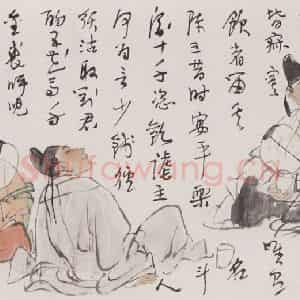 皆寂寞唯有
飲者留其名
陳王昔時宴平樂斗
酒十千恣歡謔主人
何為言少錢徑
須沽取對君
酌五花馬千
金裘呼兒
Shufawang.cn